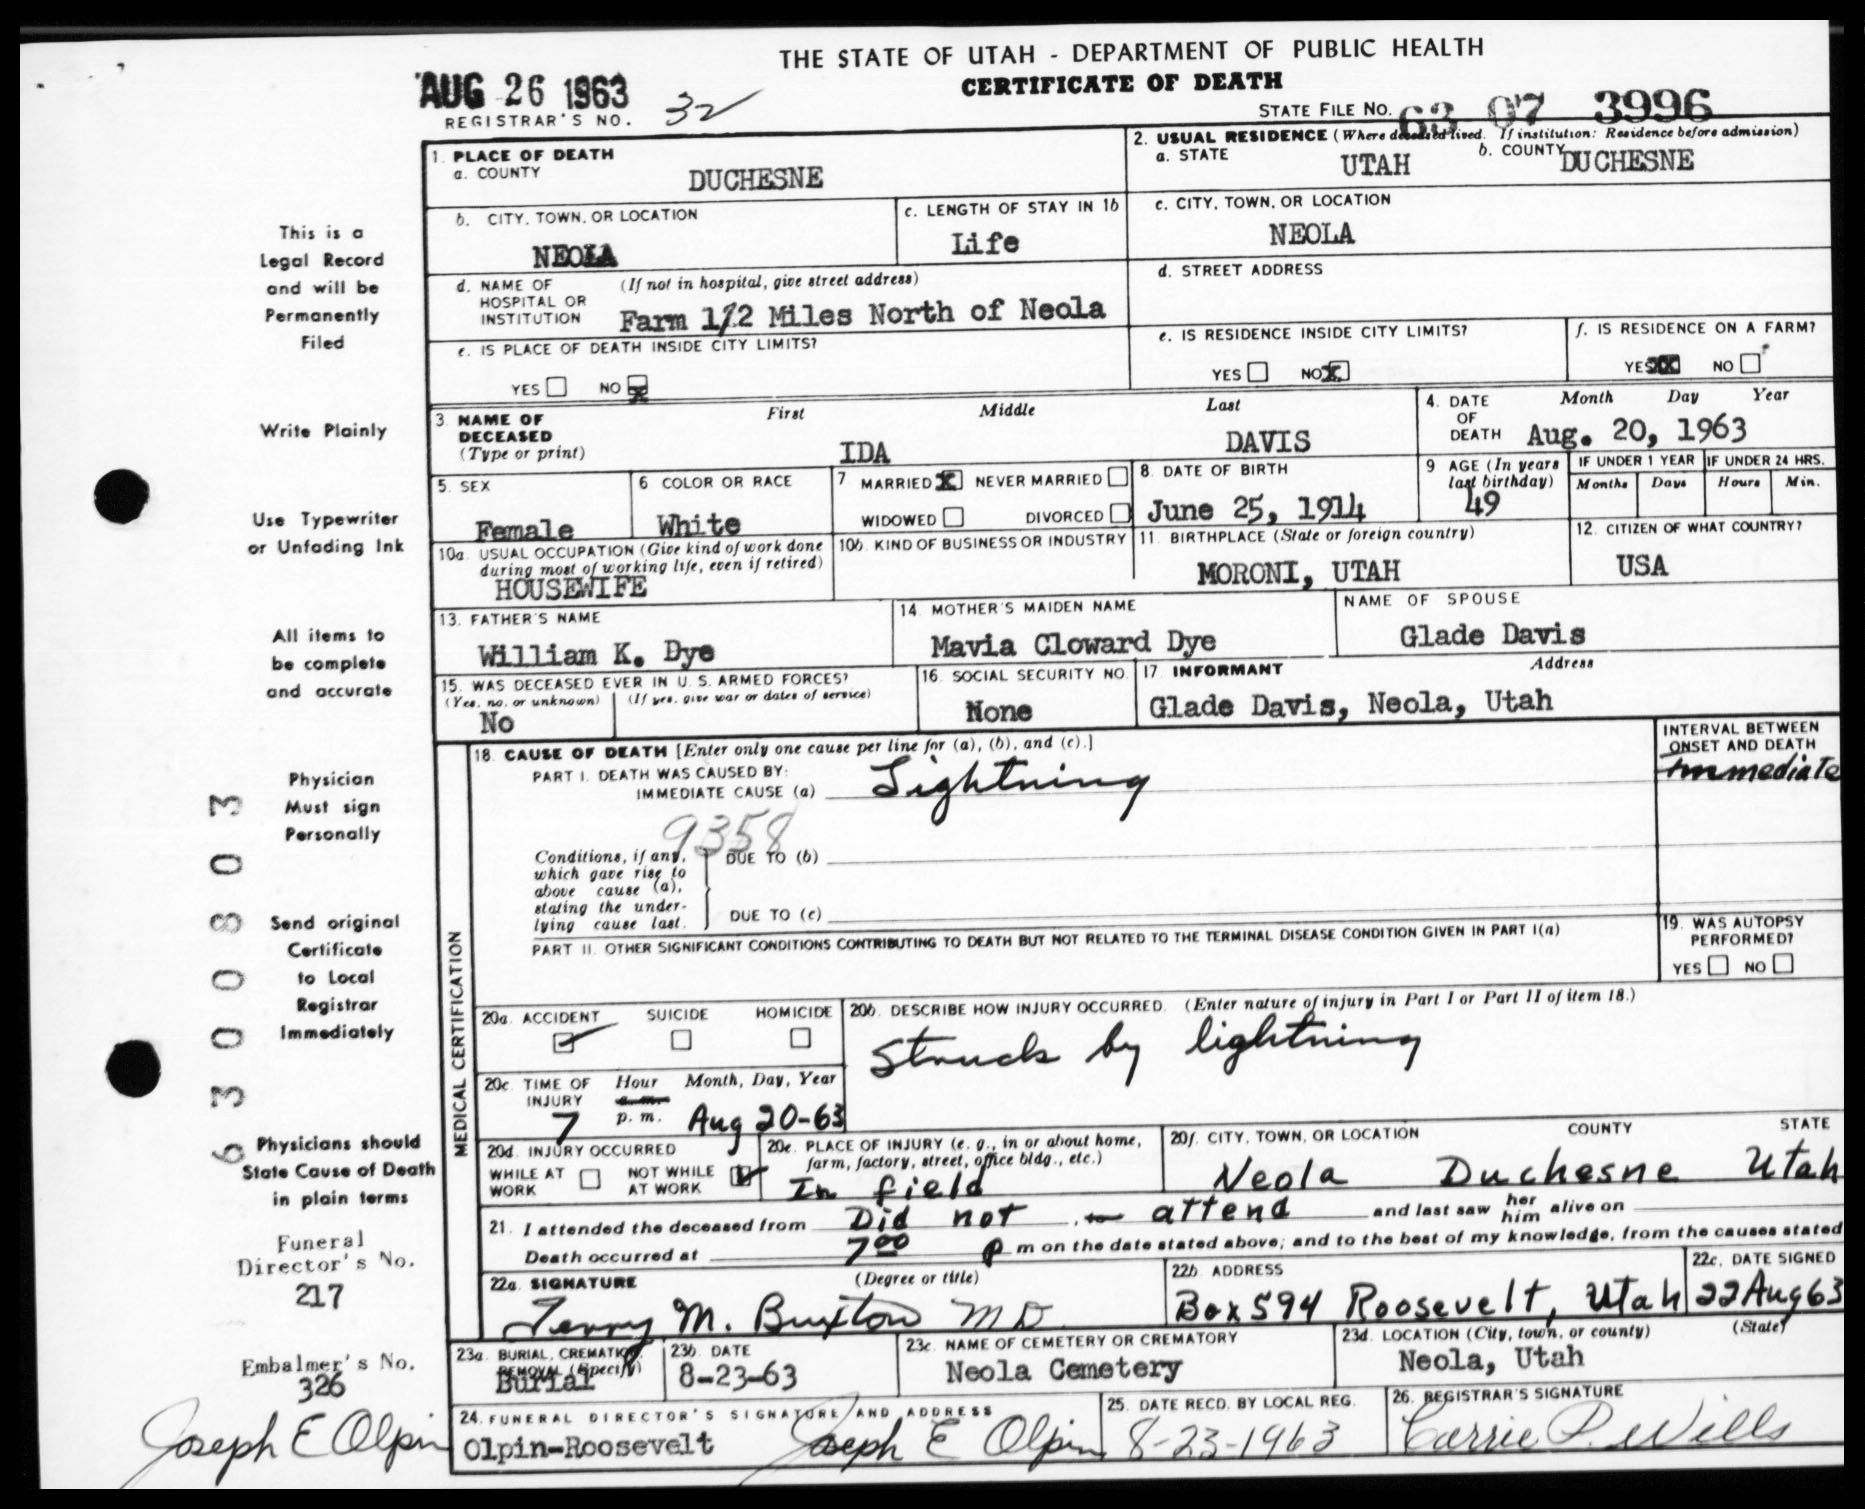 THE STATE OF UTAH - DEPARTMENT OF PUBLIC HEALTH
CERTIFICATE OF DEATH
AUG 26 1963
REGISTRAR'S NO. 32
STATE FILE NO. 63 07 3996
1. PLACE OF DEATH
a. COUNTY
DUCHESNE
2. USUAL RESIDENCE (Where deceased lived. If institution: Residence before admission)
a. STATE UTAH b. COUNTY DUCHESNE
b. CITY, TOWN, OR LOCATION
NEOLA
c. LENGTH OF STAY IN 1b
Life
c. CITY, TOWN, OR LOCATION
NEOLA
d. NAME OF HOSPITAL OR INSTITUTION (If not in hospital, give street address)
Farm 1/2 Miles North of Neola
d. STREET ADDRESS
e. IS PLACE OF DEATH INSIDE CITY LIMITS?
YES NO X
e. IS RESIDENCE INSIDE CITY LIMITS?
YES NO X
f. IS RESIDENCE ON A FARM?
YES XX NO
3 NAME OF DECEASED (Type or print)
First Middle Last
IDA DAVIS
4. DATE OF DEATH
Month Day Year
Aug. 20, 1963
5. SEX
Female
6 COLOR OR RACE
White
7 MARRIED X NEVER MARRIED
WIDOWED DIVORCED
8. DATE OF BIRTH
June 25, 1914
9 AGE (In years last birthday)
49
IF UNDER 1 YEAR
Months Days
IF UNDER 24 HRS.
Hours Min.
10a. USUAL OCCUPATION (Give kind of work done during most of working life, even if retired)
HOUSEWIFE
10b. KIND OF BUSINESS OR INDUSTRY
11. BIRTHPLACE (State or foreign country)
MORONI, UTAH
12. CITIZEN OF WHAT COUNTRY?
USA
13. FATHER'S NAME
William K. Dye
14. MOTHER'S MAIDEN NAME
Mavia Cloward Dye
NAME OF SPOUSE
Glade Davis
15. WAS DECEASED EVER IN U.S. ARMED FORCES?
(Yes, no, or unknown) (If yes, give war or dates of service)
No
16. SOCIAL SECURITY NO.
None
17 INFORMANT Address
Glade Davis, Neola, Utah
MEDICAL CERTIFICATION
18. CAUSE OF DEATH [Enter only one cause per line for (a), (b), and (c).]
PART I. DEATH WAS CAUSED BY:
IMMEDIATE CAUSE (a) Lightning
INTERVAL BETWEEN ONSET AND DEATH
Immediate
9358
Conditions, if any, which gave rise to above cause (a), stating the underlying cause last.
DUE TO (b)
DUE TO (c)
PART II. OTHER SIGNIFICANT CONDITIONS CONTRIBUTING TO DEATH BUT NOT RELATED TO THE TERMINAL DISEASE CONDITION GIVEN IN PART I(a)
19. WAS AUTOPSY PERFORMED?
YES NO
20a. ACCIDENT SUICIDE HOMICIDE
20b. DESCRIBE HOW INJURY OCCURRED. (Enter nature of injury in Part I or Part II of item 18.)
Struck by lightning
20c. TIME OF INJURY
Hour Month, Day, Year
a.m.
7 p.m. Aug 20-63
20d. INJURY OCCURRED
WHILE AT WORK NOT WHILE AT WORK
20e. PLACE OF INJURY (e. g., in or about home, farm, factory, street, office bldg., etc.)
In field
20f. CITY, TOWN, OR LOCATION COUNTY STATE
Neola Duchesne Utah
21. I attended the deceased from Did not , to attend and last saw her him alive on
Death occurred at 7:00 p m on the date stated above; and to the best of my knowledge, from the causes stated
22a. SIGNATURE (Degree or title)
Terry M. Buxton MD
22b ADDRESS
Box 594 Roosevelt, Utah
22c. DATE SIGNED
22 Aug 63
23a. BURIAL, CREMATION, REMOVAL (Specify)
Burial
23b. DATE
8-23-63
23c. NAME OF CEMETERY OR CREMATORY
Neola Cemetery
23d. LOCATION (City, town, or county) (State)
Neola, Utah
24. FUNERAL DIRECTOR'S SIGNATURE AND ADDRESS
Olpin-Roosevelt Joseph E Olpin
25. DATE RECD. BY LOCAL REG.
8-23-1963
26. REGISTRAR'S SIGNATURE
Carrie P. Wills
This is a
Legal Record
and will be
Permanently
Filed
Write Plainly
Use Typewriter
or Unfading Ink
All items to
be complete
and accurate
Physician
Must sign
Personally
Send original
Certificate
to Local
Registrar
Immediately
Physicians should
State Cause of Death
in plain terms
Funeral
Director's No.
217
Embalmer's No.
326
Joseph E Olpin
6300803